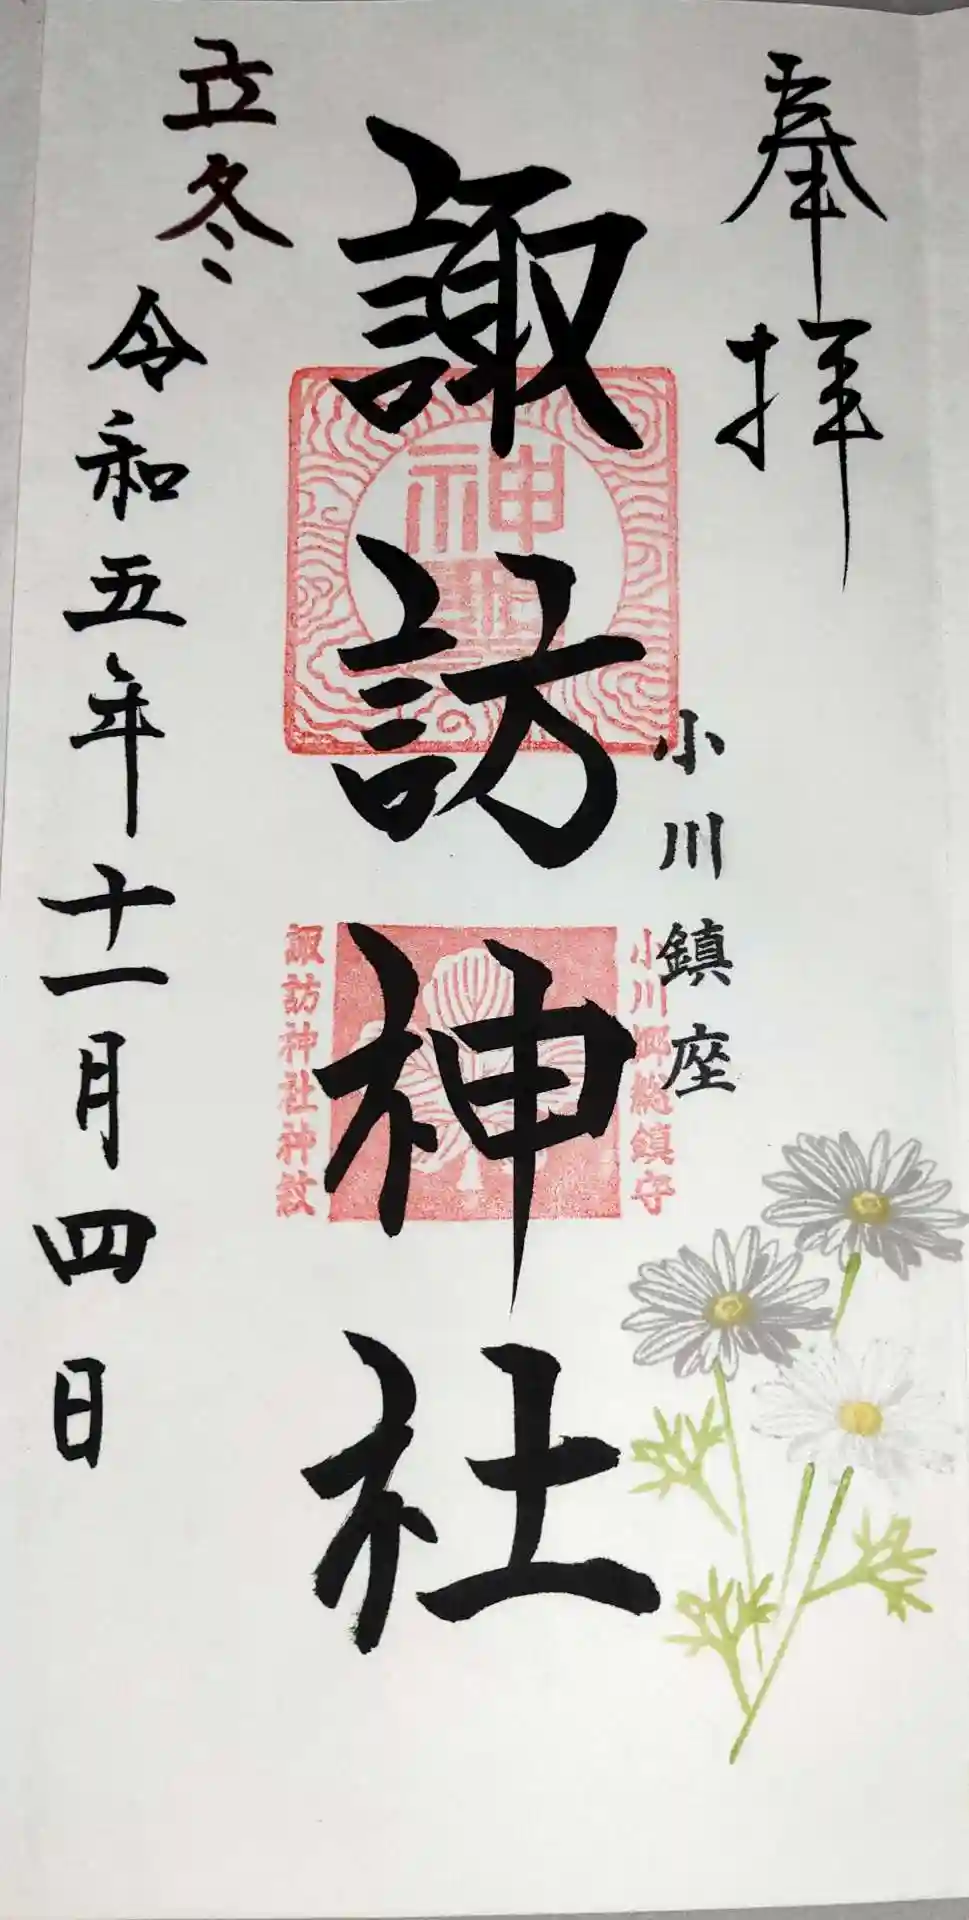 奉拝
小川鎮座
小川郷総鎮守
諏訪神社
諏訪神社神紋
立冬
令和五年十一月四日